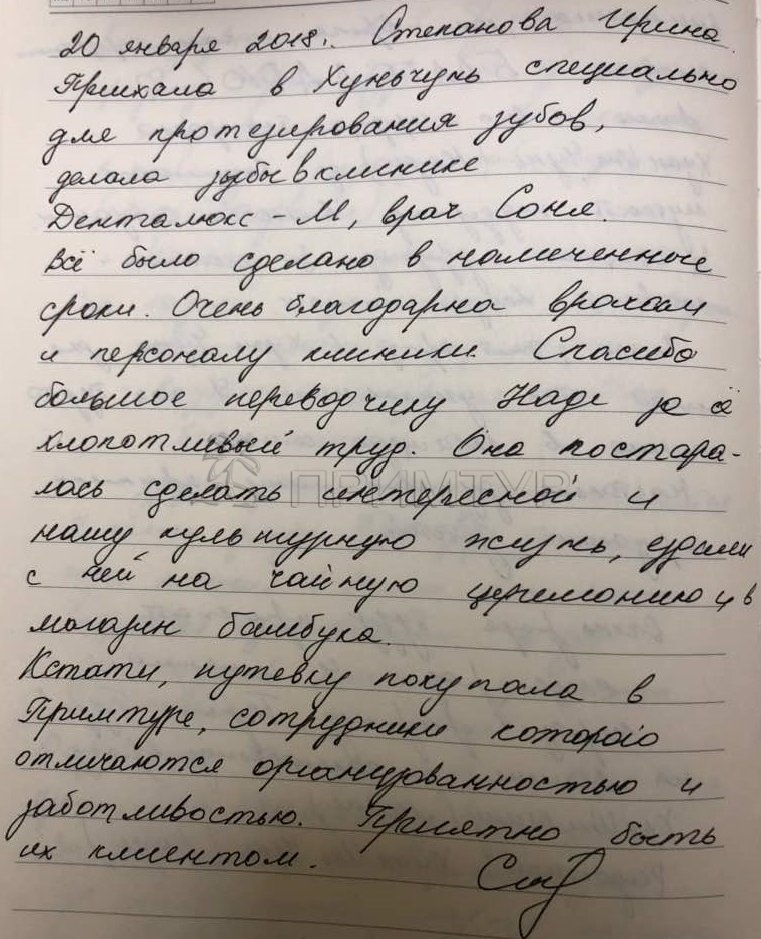 20 января 2018г. Степанова Ирина.
Приехала в Хуньчунь специально
для протезирования зубов,
делала зубы в клинике
Денталюкс-М, врач Соня.
Всё было сделано в намеченные
сроки. Очень благодарна врачам
и персоналу клиники. Спасибо
большое переводчику Наде за её
хлопотливый труд. Она постара-
лась сделать интересной и
ПРИМТУР
нашу культурную жизнь, ездили
с ней на чайную церемонию и в
магазин бамбука.
Кстати, путевку покупала в
Примтуре, сотрудники которого
отличаются организованностью и
заботливостью. Приятно быть
их клиентом.